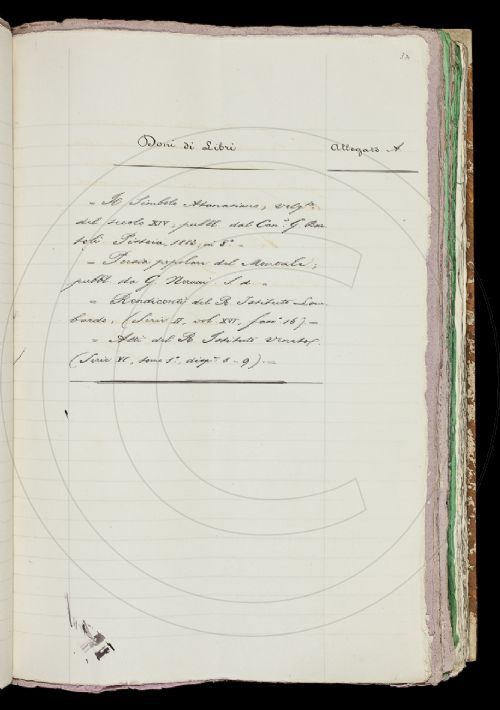 Doni di Libri
Allegato A
" Il Simbolo Atanasiano, volg.
del secolo XIV, pubbl. dal Can. G.
Pistoia, in 8°
" Poesie popolari del
pubbl. da G. Nerucci, S. d.
" Rendiconti del R. Istituto Lom-
bardo, (Serie II, vol. XVI, fasc. 16) –
" Atti del R. Istituto Veneto,
(Serie VI, tomo 1°, disp. 8-9). –